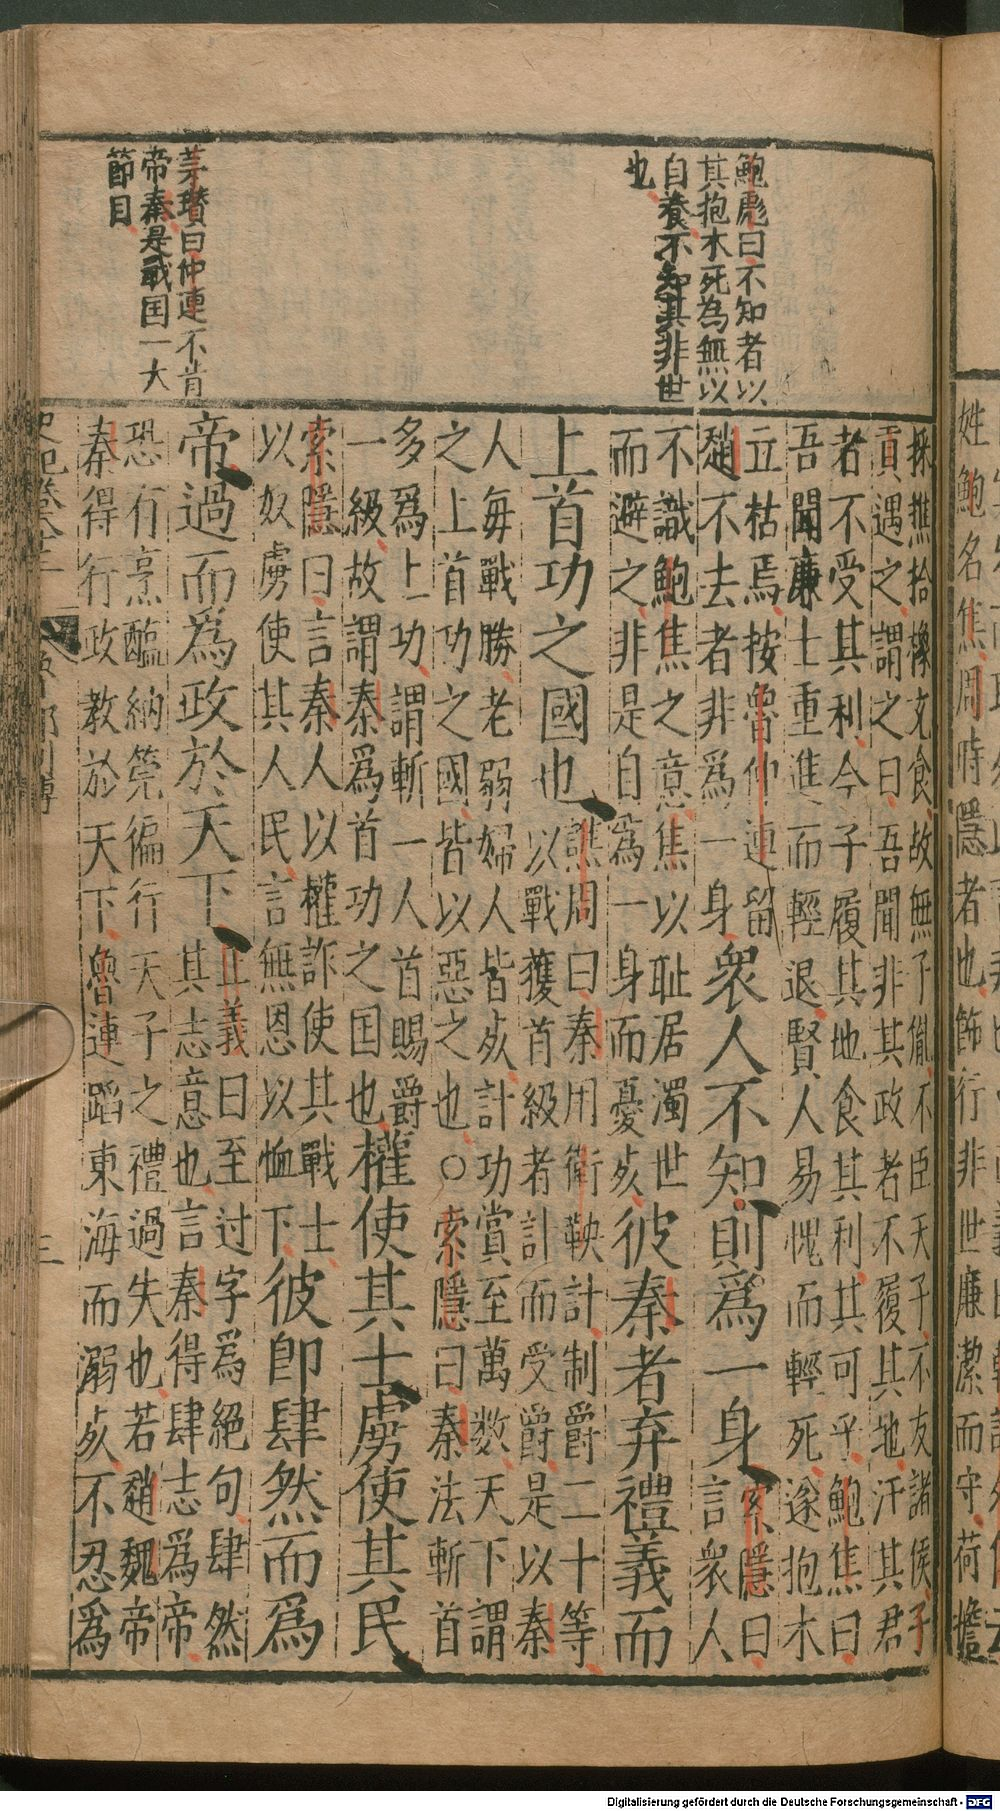 姓鮑名焦周時隱者也飾行非世廉潔而守荷擔
鮑彪曰不知者以
其抱木死為無以
自養不知其非世
也
茅瓚曰仲連不肯
帝秦是戰国一大
節目
採樵拾橡充食故無子胤不臣天子不友諸侯子
貢遇之謂之曰吾聞非其政者不履其地汙其君
者不受其利今子履其地食其利其可乎鮑焦曰
吾聞廉士重進而輕退賢人易愧而輕死遂抱木
立枯焉按魯仲連留
趙不去者非爲一身
衆人不知則爲一身
索隱曰
言衆人
不識鮑焦之意焦以耻居濁世
而避之非是自爲一身而憂死
彼秦者弃禮義而
上首功之國也
譙周曰秦用衛鞅計制爵二十等
以戰獲首級者計而受爵是以秦
人每戰勝老弱婦人皆死計功賞至萬数天下謂
之上首功之國皆以惡之也○索隱曰秦法斬首
多爲上功謂斬一人首賜爵
一級故謂秦爲首功之国也
權使其士虜使其民
索隱曰言秦人以權詐使其戰士
以奴虜使其人民言無恩以恤下
彼即肆然而爲
帝過而爲政於天下
正義曰至过字爲絕句肆然
其志意也言秦得肆志爲帝
恐有烹醢納筦徧行天子之禮過失也若趙魏帝
秦得行政教於天下魯連蹈東海而溺死不忍爲
三
Digitalisierung gefördert durch die Deutsche Forschungsgemeinschaft - DFG